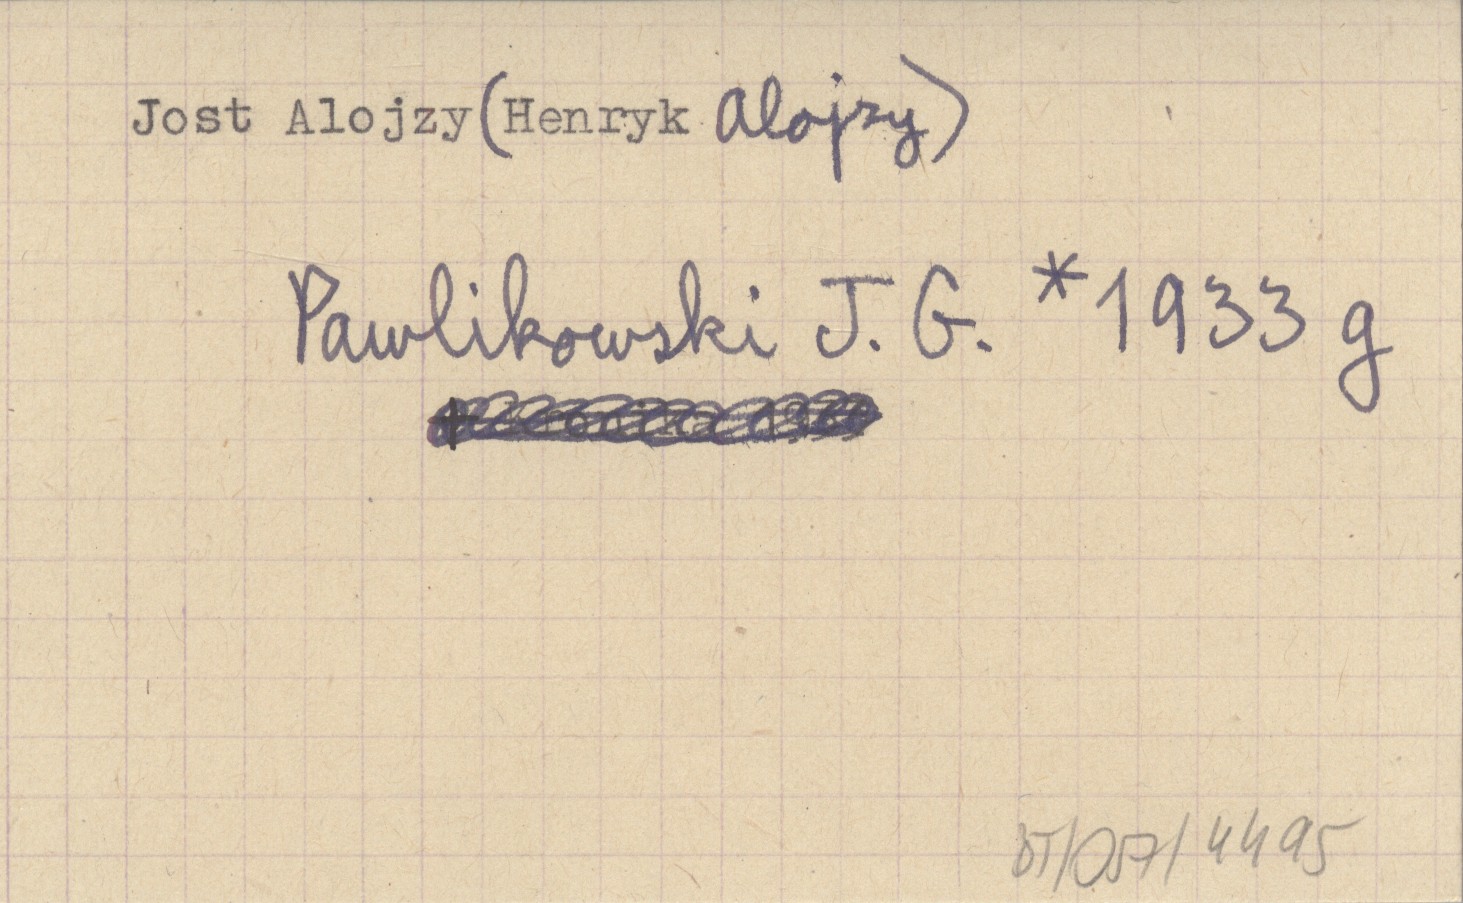 Jost Alojzy (Henryk Alojzy)
Pawlikowski J. G. * 1933 g
DT/057/4495